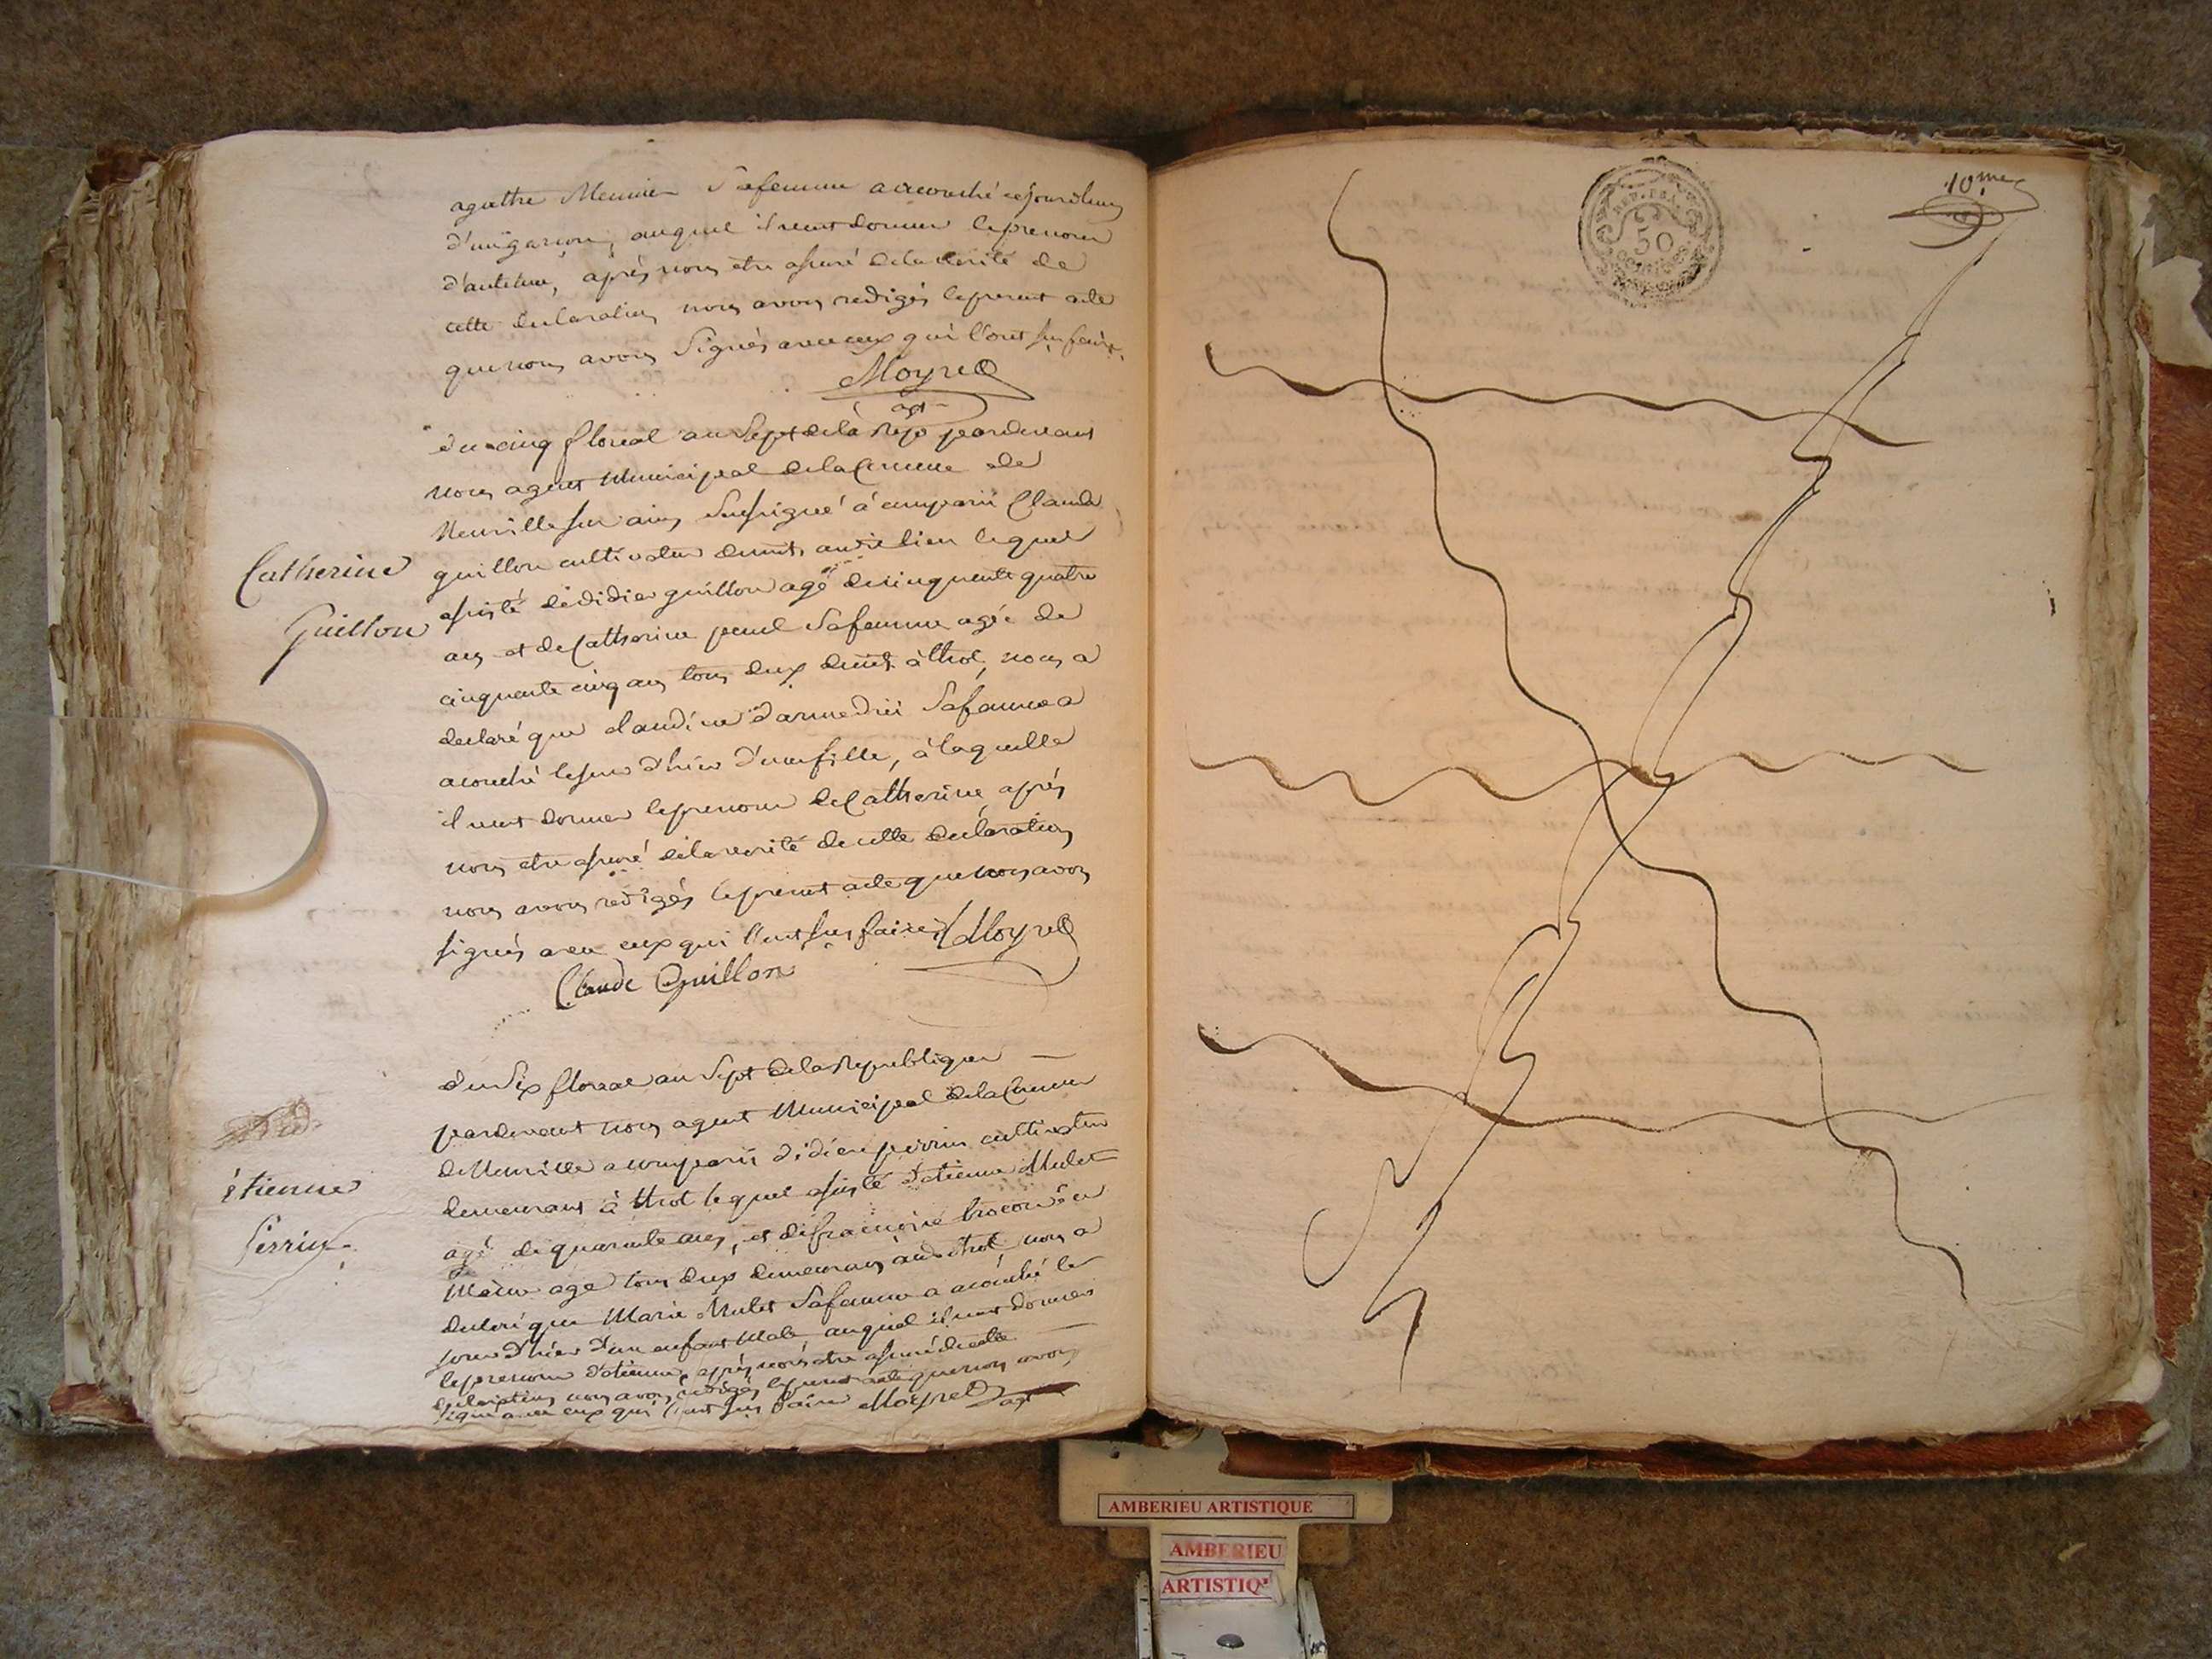 agathe Meunier Safemme a accouché cejourdhuy
d'un garçon, auquel il veut donner leprenom
d'antelme, après nous etre assuré dela verité de
cette declaration nous avons redigés lepresent acte
que nous avons Signés avec eux qui l'ont sus faire.
Moyret
agt
du cinq floreal an Sept dela Rep pardevant
nous agent Municipal dela Comune de
Neuville sur ain Sousigné à comparu Claude
Catherine
Guillon
guillon cultivateur demt audit lieu lequel
assisté dedidier guillon agé decinquante quatre
ans et deCatherine Safemme agée de
cinquante cinq ans tous deux demt à thol, nous a
declaré que claudine Safemme a
acouché lejour d'hier d'une fille, à laquelle
il veut donner leprenom deCatherine, après
nous etre assuré dela verité de cette declaration
nous avons redigés lepresent acte que nous avons
signés avec eux qui l'ont sus faire Moyret
Claude Guillon
du Six floreal an Sept dela Republique
pardevant nous agent Municipal dela Comune
deNeuville a comparu didier perrin cultivateur
étienne
Perrin
demeurant à thol lequel assisté d'etienne Mulet
agé dequarante ans, et defrançoise
Même age tous deux demeurans audit thol nous a
declaré que Marie Mulet Safemme a acouché le
jour d'hier d'un enfant Male, auquel il veut donner
leprenom d'etienne, après nous etre assuré decette
declaration nous avons redigés lepresent acte que nous avons
signé avec eux qui l'ont sus faire Moyret
agt
10me
REP. FRA.
50
CENTIMES
AMBERIEU ARTISTIQUE
AMBERIEU
ARTISTIQ